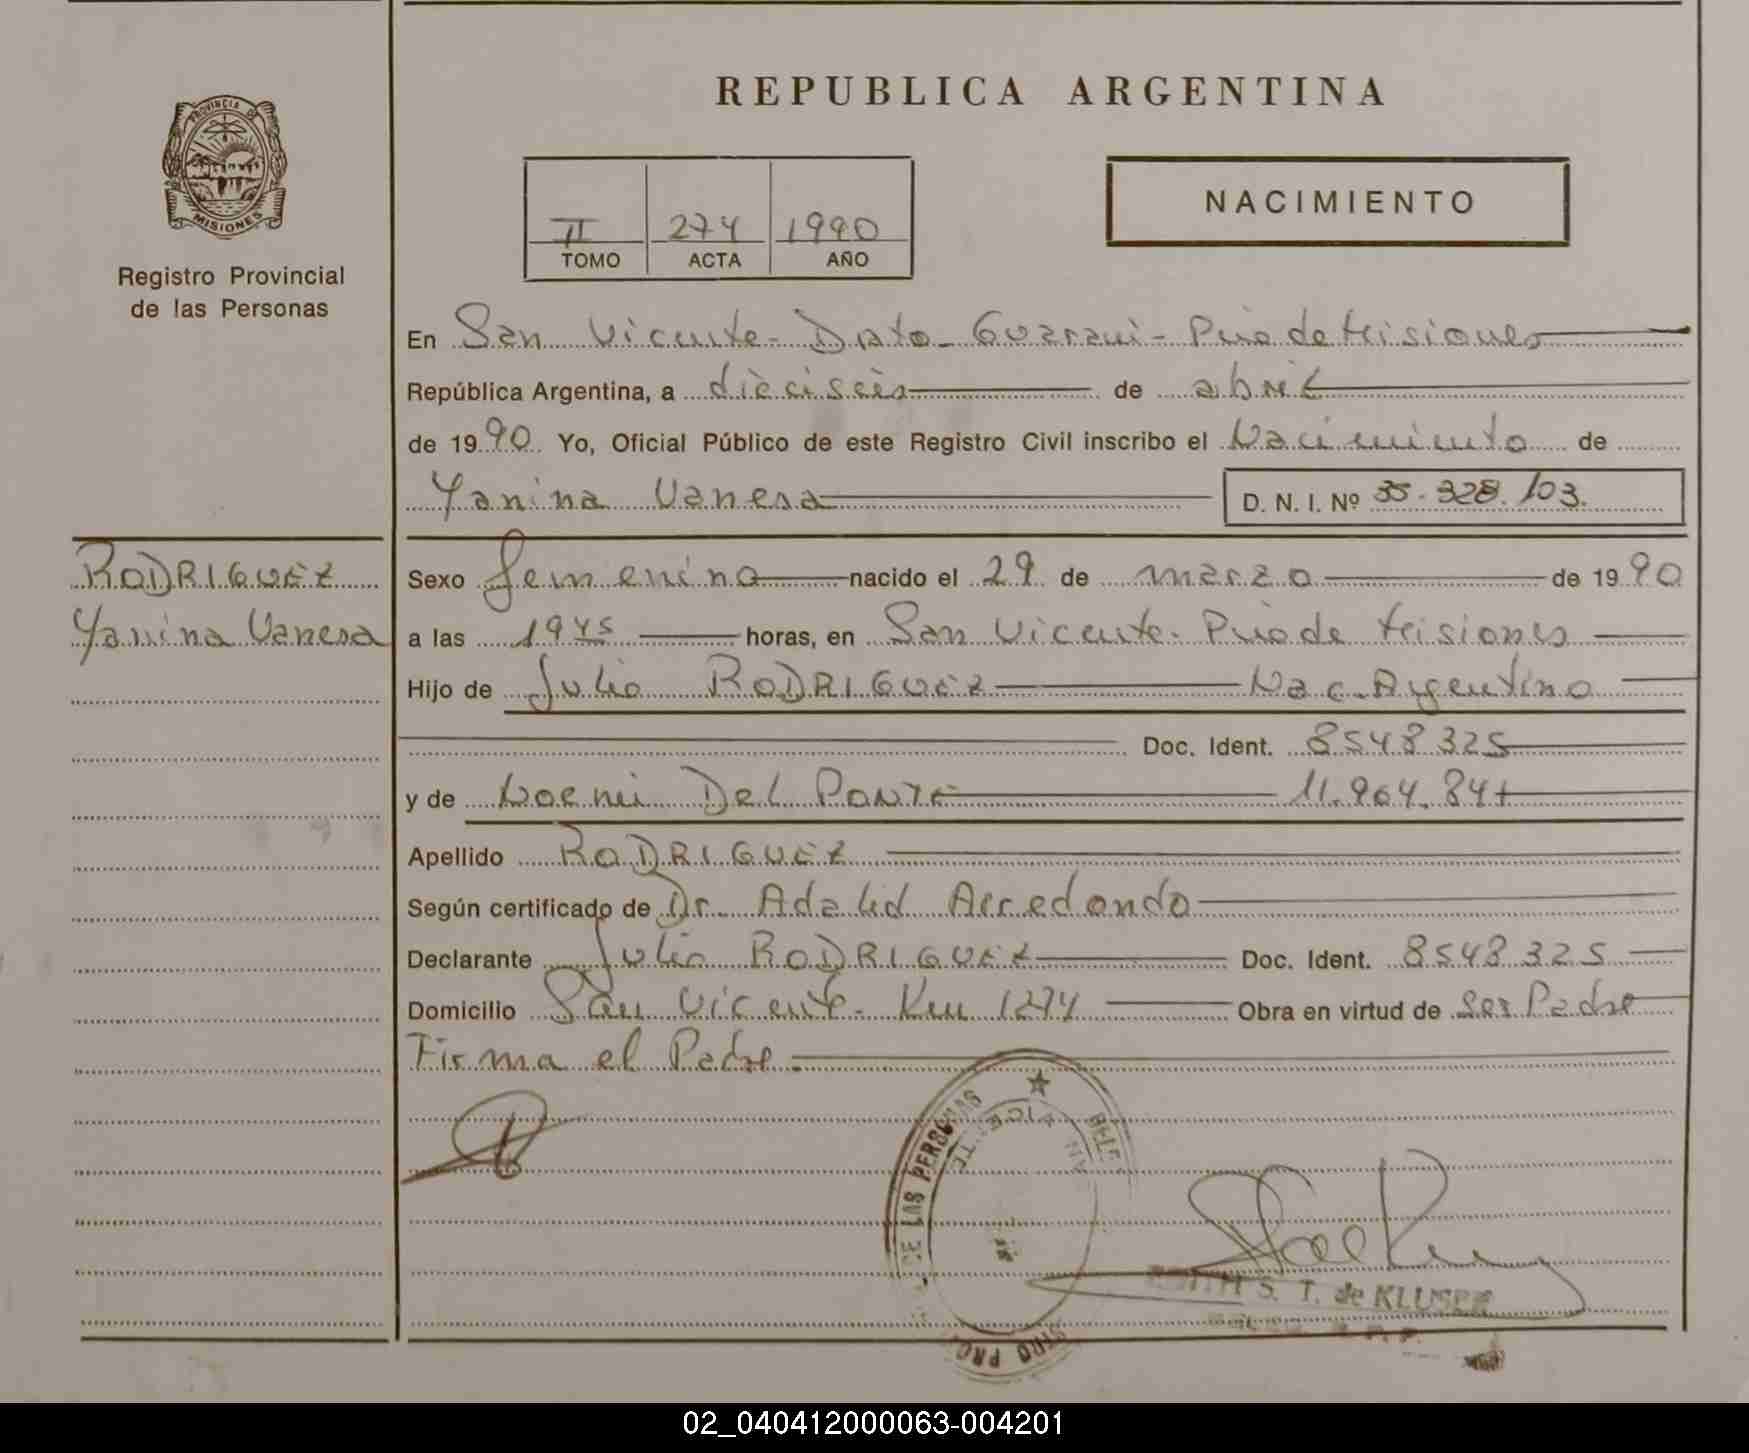 REPUBLICA ARGENTINA
PROVINCIA DE
MISIONES
Registro Provincial
de las Personas
II 274 1990
TOMO ACTA AÑO
NACIMIENTO
En San Vicente - Dpto - Guarani - Pcia de Misiones
República Argentina, a dieciseis de abril
de 1990 Yo, Oficial Público de este Registro Civil inscribo el Nacimiento de
Yanina Vanesa D. N. I. Nº 35.328.103.
RODRIGUEZ
Yanina Vanesa
Sexo femenino nacido el 29 de marzo de 1990
a las 19 45 horas, en San Vicente - Pcia de Misiones
Hijo de Julio RODRIGUEZ Nac. Argentino
Doc. Ident. 8548325
y de Noemi Del PONTE 11.964.841
Apellido RODRIGUEZ
Según certificado de Dr. Adalid Arredondo
Declarante Julio RODRIGUEZ Doc. Ident. 8548325
Domicilio San Vicente - Km 1274 Obra en virtud de ser Padre
Firma el Padre.
DE LAS PERSONAS
S. T. de KLUSER
02_040412000063-004201